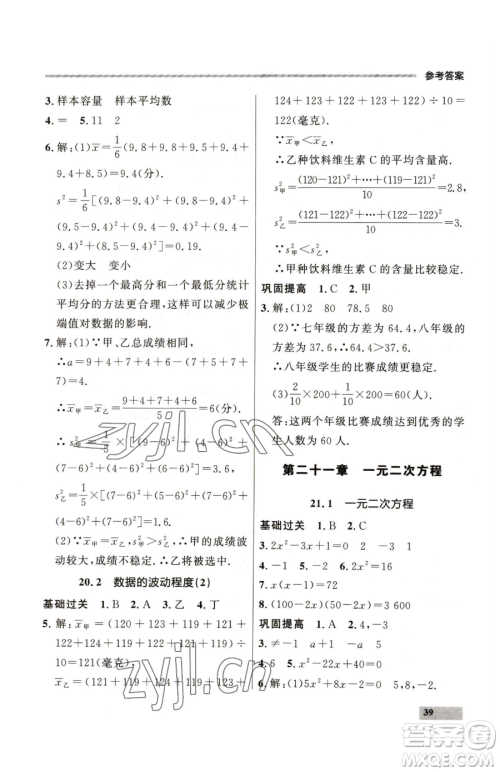 参考答案
3. 样本容量 样本平均数
4. = 5. 11 2
6. 解:(1)x̄=1/6(9.8+9.4+9.5+9.8+
9.4+8.4)=9.4(分).
s²=1/6[(9.8-9.4)²+(9.4-9.4)²+
(9.5-9.4)²+(9.8-9.4)²+(9.4-
9.4)²+(8.4-9.4)²]=0.19.
(2)变大 变小
(3)去掉一个最高分和一个最低分统计
平均分的方法更合理,可以减少极
端值对数据的影响.
7. 解:(1)∵甲、乙总成绩相同,
∴a=9+4+7+4+6-(7+5+7+
7)=4.
x̄甲=(9+4+7+4+6)/5=6(分)
[(9-6)²+(4-6)²+
(7-6)²+(4-6)²+(6-6)²]=3.6.
(7-6)²+(4-6)²+
(7-6)²]=1.6.
∴甲的成绩
波动较大,成绩不稳定.∴乙将被选中.
20.2 数据的波动程度(2)
基础过关 1. B 2. A 3. 乙 4. 丁
5. 解:x̄甲=(120+123+119+121+
122+124+119+122+121+119)
÷10=121(毫克),
x̄乙=(121+119+
124+123+122+123+122)÷10=
122(毫克).
∵x̄甲<x̄乙,
∴乙种饮料维生素 C 的平均含量高.
s²甲=((120-121)²+…+(119-121)²)/10=2.8,
s²乙=((121-122)²+…+(122-122)²)/10=
∴甲种饮料维生素 C 的含量稳定.
巩固提高 1. C 2. 甲
3. 解:(1)2 80 78.5 80
(2)∵七年级的方差为 64.4,八年级的
方差为 37.6,∴37.6<64.4.
∴八年级学生的比赛成绩更稳定.
(3)2/10×200+1/10×200=60(人).
答:这两个年级比赛成绩达到优秀的学
生人数为 60 人.
第二十一章 一元二次方程
21.1 一元二次方程
基础过关 1. B 2. C
3. 2x²-1=0 2 0 -1
4. -1 5. -2
6. (100-2x)(50-2x)=3 600
巩固提高 1. A 2. 4,-3
3. ≠-1 a+1 -a
4. 6 5. 2x²-x-3=0
6. 解:(1)5x²-2x=0.
39
zyjl.cn
zyjl.cn
作业精灵
答案圈
MXQE.COM